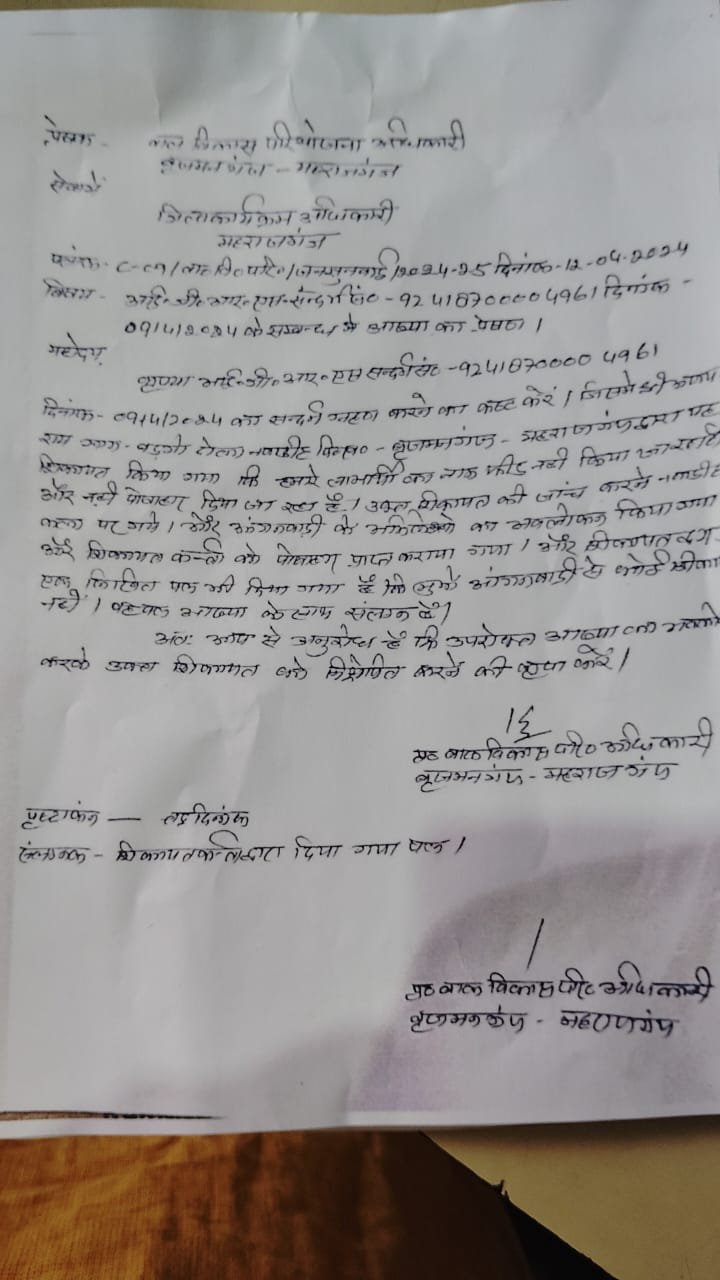 प्रेषक- बाल विकास परियोजना अधिकारी
बृजमनगंज - महराजगंज
सेवामें
जिलाकार्यक्रम अधिकारी
महराजगंज
पत्रांक- C-C9/बा०वि०परि०/जनसुनवाई/2024-25 दिनांक-12-04-2024
विषय- आई०जी०आर०एस०सन्दर्भ सं०-92418700004961 दिनांक-
09/4/2024 के सम्बन्ध में आख्या का प्रेषण।
महोदय,
कृपया आई०जी०आर०एस सन्दर्भ सं०-92418700004961
दिनांक- 09/4/2024 का सन्दर्भ ग्रहण करने का कष्ट करें। जिसमें श्री
राम ग्राम- टोला बृजमनगंज- महराजगंज द्वारा यह
शिकायत किया गया कि हमारे लाभार्थी का नाम फीड नही किया जा रहा है
और नही पोषाहार दिया जा रहा है। उक्त शिकायत की जांच करने
गये। और आंगनवाड़ी के अभिलेखों का अवलोकन किया गया
और शिकायत कर्ता को पोषाहार प्राप्त कराया गया। और शिकायत
एक लिखित पत्र भी दिया गया है कि मुझे आंगनवाड़ी से कोई
नही। यह पत्र आख्या के साथ संलग्न है।
अतः आप से अनुरोध है कि उपरोक्त आख्या का
करके उक्त शिकायत को निक्षेपित करने की कृपा करें।
प्र० बाल विकास परि० अधिकारी
बृजमनगंज - महराजगंज
पृष्टांकन — तद्दिनांक
संलग्नक - शिकायतकर्ता द्वारा दिया गया पत्र।
प्र० बाल विकास परि० अधिकारी
बृजमनगंज - महराजगंज